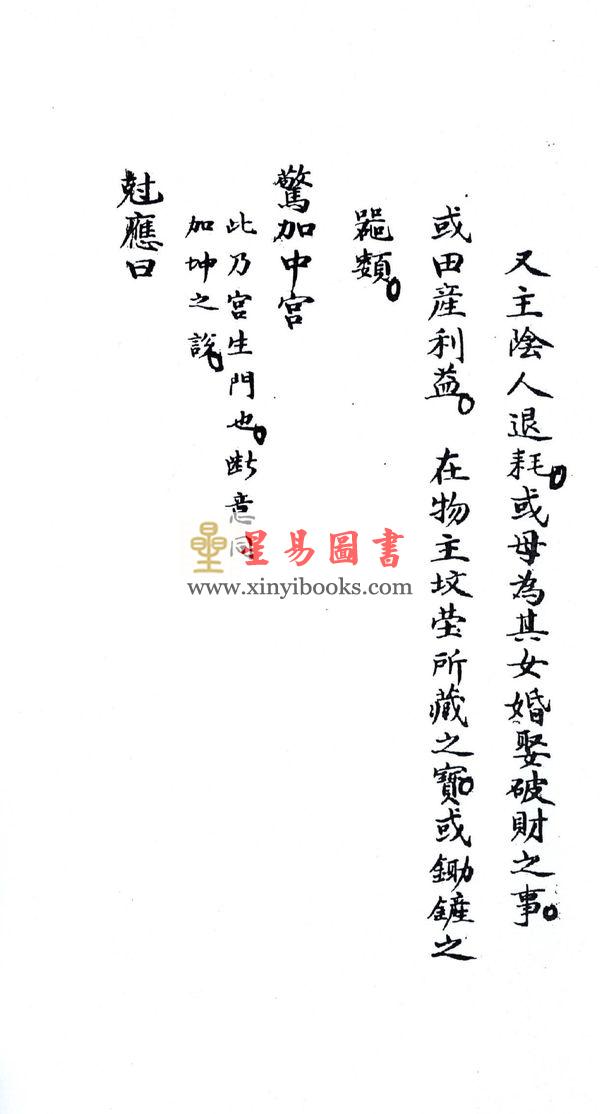 又主陰人退耗。或母為其女婚娶破財之事。
或田產利益。在物主坟茔所藏之寶。或鋤鏟之
噐類。
驚加中宮
此乃宮生門也。断意同
加坤之說。
尅應曰
星易圖書
www.xinyibooks.com